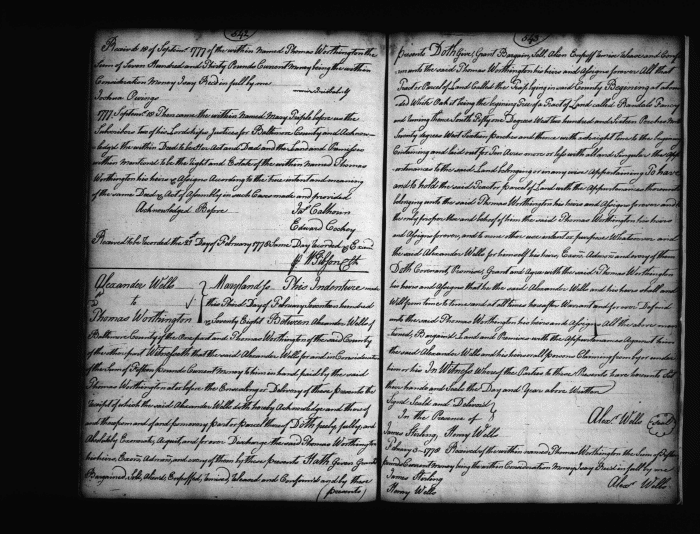 342
Received 10 of Septemr. 1777 of the within Named Thomas Worthington the
Sum of Seven Hundred and Thirty Pounds Current Money being the within
Consideration Money I say Recd in full by me
Joshua Owings
1777 Septemr. 10 Then came the within Named Mary before us the
Subscribers two of his Lordships Justices for Baltimore County and Acknow-
ledge the within Deed to be Act and Deed and the Land and Premises
within mentioned to be the Right and Estate of the within named Thomas
Worthington his heirs & Assigns According to the true intent and meaning
of the same Deed & Act of Assembly in such Cases made and provided
Acknowledged Before Jas. Calhoun
Edward Cockey
Received to be Recorded the 21st Day of February 1778 Same Day Recorded & Examd
Alexander Wells
to
Thomas Worthington
Maryland Ss. This Indenture made
this Third Day of February Seventeen hundred
& Seventy Eight Between Alexander Wells of
Baltimore County of the One part and Thomas Worthington of the said County
of the other part Witnesseth that the said Alexander Wells for and in Consideration
of the Sum of Fifteen pounds Current Money to him in hand paid by the said
Thomas Worthington at or before the Ensealing & Delivery of these presents the
Receipt of which the said Alexander Wells doth hereby Acknowledge and thereof
and therefrom and of and from every part & parcel thereof Doth freely fully, and
Absolutely Exonerate, Acquit, and forever Discharge the said Thomas Worthington
his heirs, Execrs. Admrs. and every of them by these presents Hath Given Granted
Bargained, Sold, Aliened, Enfeoffed, and Confirmed and by these
(presents)
343
presents Doth Give, Grant Bargain, Sell, Alien Enfeoff and Conf
unto the said Thomas Worthington his heirs and Assigns forever All that
Tract or Parcel of Land Called the lying in said County Beginning at a bound
White Oak it being the beginning Tree of a Tract of Land called
and running thence South Fifty one Degrees West two hundred and Sixteen Perches North
Seventy degrees West Sixteen perches and thence with a straight line to the beginning
Containing and laid out for Ten Acres more or less with all and Singular the App
urtenances to the said Land belonging or in any wise Appertaining To have
and to hold the said Tract or parcel of Land with the Appurtenances thereunto
belonging unto the said Thomas Worthington his heirs and Assigns forever and to
the only proper Use and behoof of him the said Thomas Worthington his heirs
and Assigns forever, and to none other use intent or purpose Whatsoever and
the said Alexander Wells for himself his heirs, Execrs. Admrs. and every of them
Doth Covenant, Promise, Grant and Agree with the said Thomas Worthington
his heirs and Assigns that he the said Alexander Wells and his heirs shall and
Will from time to time and at all times hereafter Warrant and forever Defend
unto the said Thomas Worthington his heirs and Assigns All the above men
tioned, Bargained Land and Premises with the Appurtenances Against him
the said Alexander Wells and his heirs or all persons Claiming from by or under
him or his In Witness Whereof the Parties to these Presents have hereunto Set
their hands and Seals the Day and Year above Written
Signd Seald and Deliverd
In the Presence of Alexr. Wells (Seal)
James Sterling, Henry Wells
February 3 1778 Received of the within named Thomas Worthington the Sum of Fifteen
pounds Current money being the within Consideration Money I say Recd in full by me
James Sterling
Henry Wells Alexr. Wells